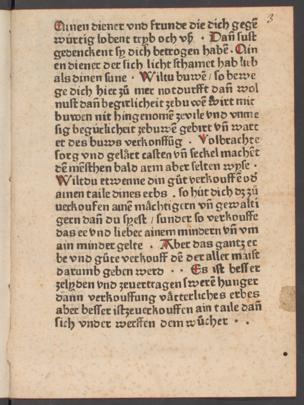 3
Ginen diener vnd frunde die dich gegē
würtig lobent tryb och vß · Dañ suſt
gedenckent sy dich betrogen habē · Gin
en diener der sich licht schamet hab lieb
als dinen sune · Wiltu buwē / so bewe
ge dich hier zů mer notdurfft dañ wol
nuſt dañ begirlicheit zebuwē wirt mit
buwen nit hin genomē ze vile vnd vnme
sig begürlicheit zebuwē gebirt vñ wart
et des buws verkouffūg · Volbrachte
sorg vnd gelärt caſten vñ seckel machēt
dē mēschen bald arm aber selten wyse ·
Wiltdu etwenne din gůt verkouffē od
ainen taile dines erbs · so hüt dich dz zů
verkoufen ainē mächtigern vñ gewalti
gern dañ du syeſt / sunder so verkouffe
das ee vnd lieber ainem mindern vñ vm
ain minder gelte · Aber das gantz er
be vnd gůte verkouff dē der aller maiſt
darumb geben werd · · Es iſt besser
zelyden vnd zeuertragen swerē hunger
dañ verkouffung vätterliches erbes
aber besser iſt zeuerkouffen ain taile dañ
sich vnder werffen dem wůcher · ·